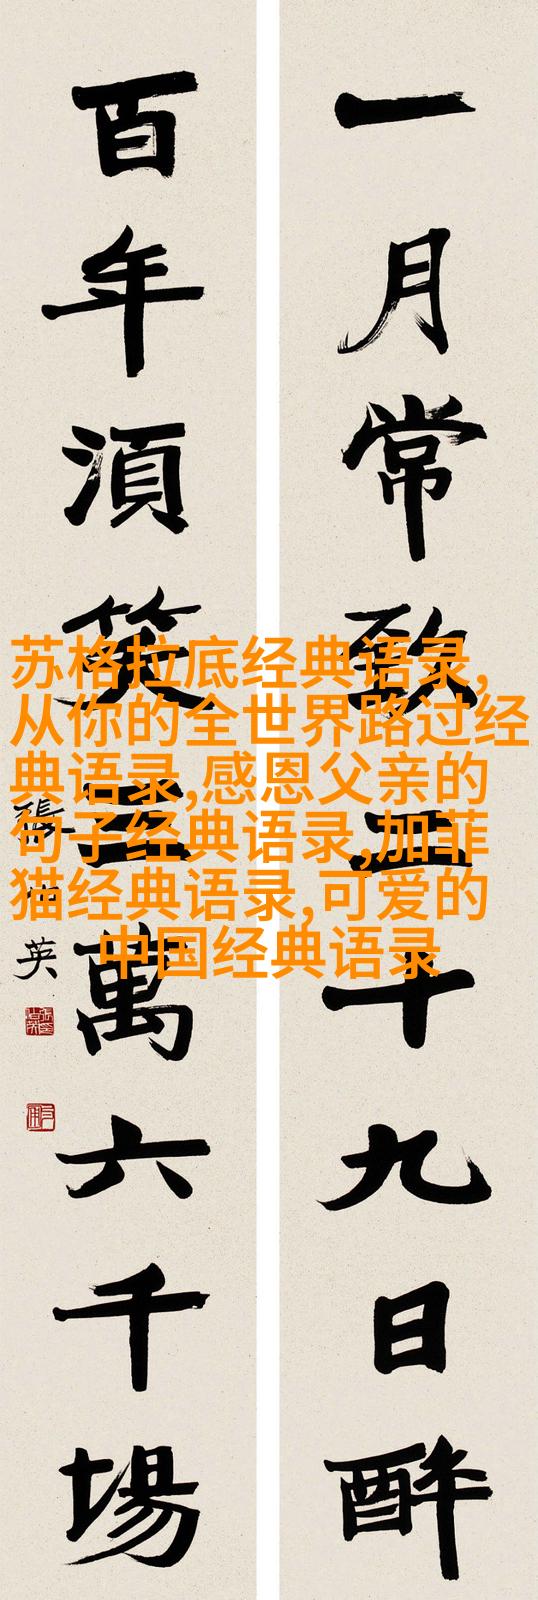 一月常致二十九日醉
百年湏笑三萬六千場
張伯英
苏格拉底经典语录,
从你的全世界路过经
典语录,感恩父亲的
句子经典语录,加菲
猫经典语录,可爱的
中国经典语录